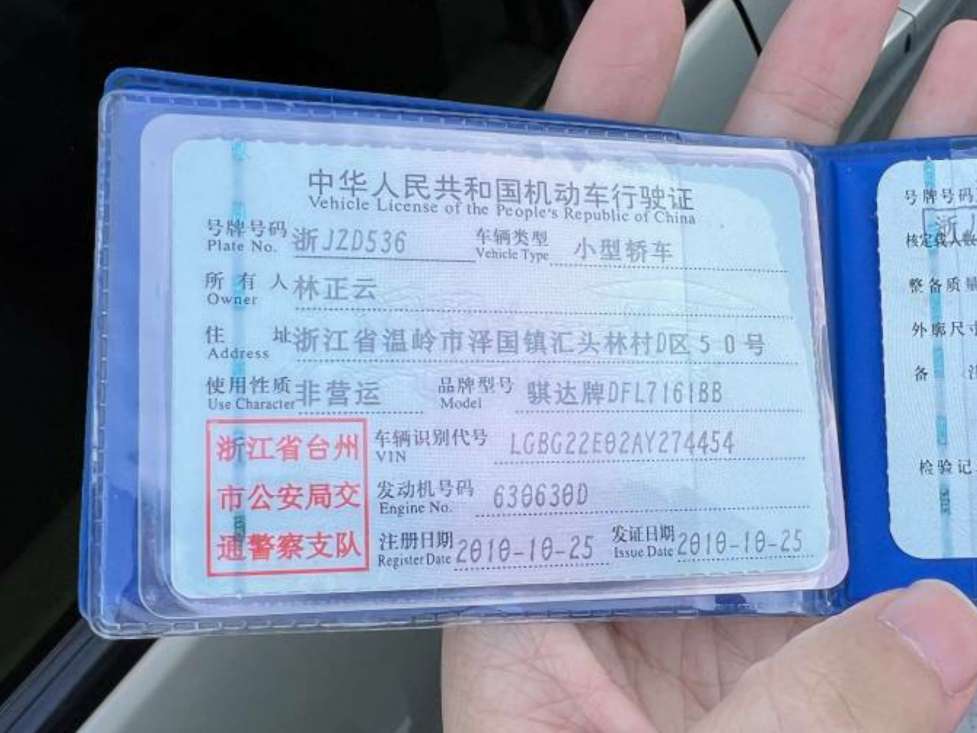 中华人民共和国机动车行驶证
Vehicle License of the People's Republic of China
号牌号码 浙JZD536 车辆类型 小型轿车
Plate No. Vehicle Type
所有人 林正云
Owner
住址 浙江省温岭市泽国镇汇头林村D区50号
Address
使用性质 非营运 品牌型号 骐达牌DFL7161BB
Use Character Model
车辆识别代号 LGBG22E02AY274454
VIN
发动机号码 630630D
Engine No.
注册日期 2010-10-25 发证日期 2010-10-25
Register Date Issue Date
浙江省台州
市公安局交
通警察支队
号牌号码
浙
核定载人数
整备质量
外廓尺寸
备
检验记